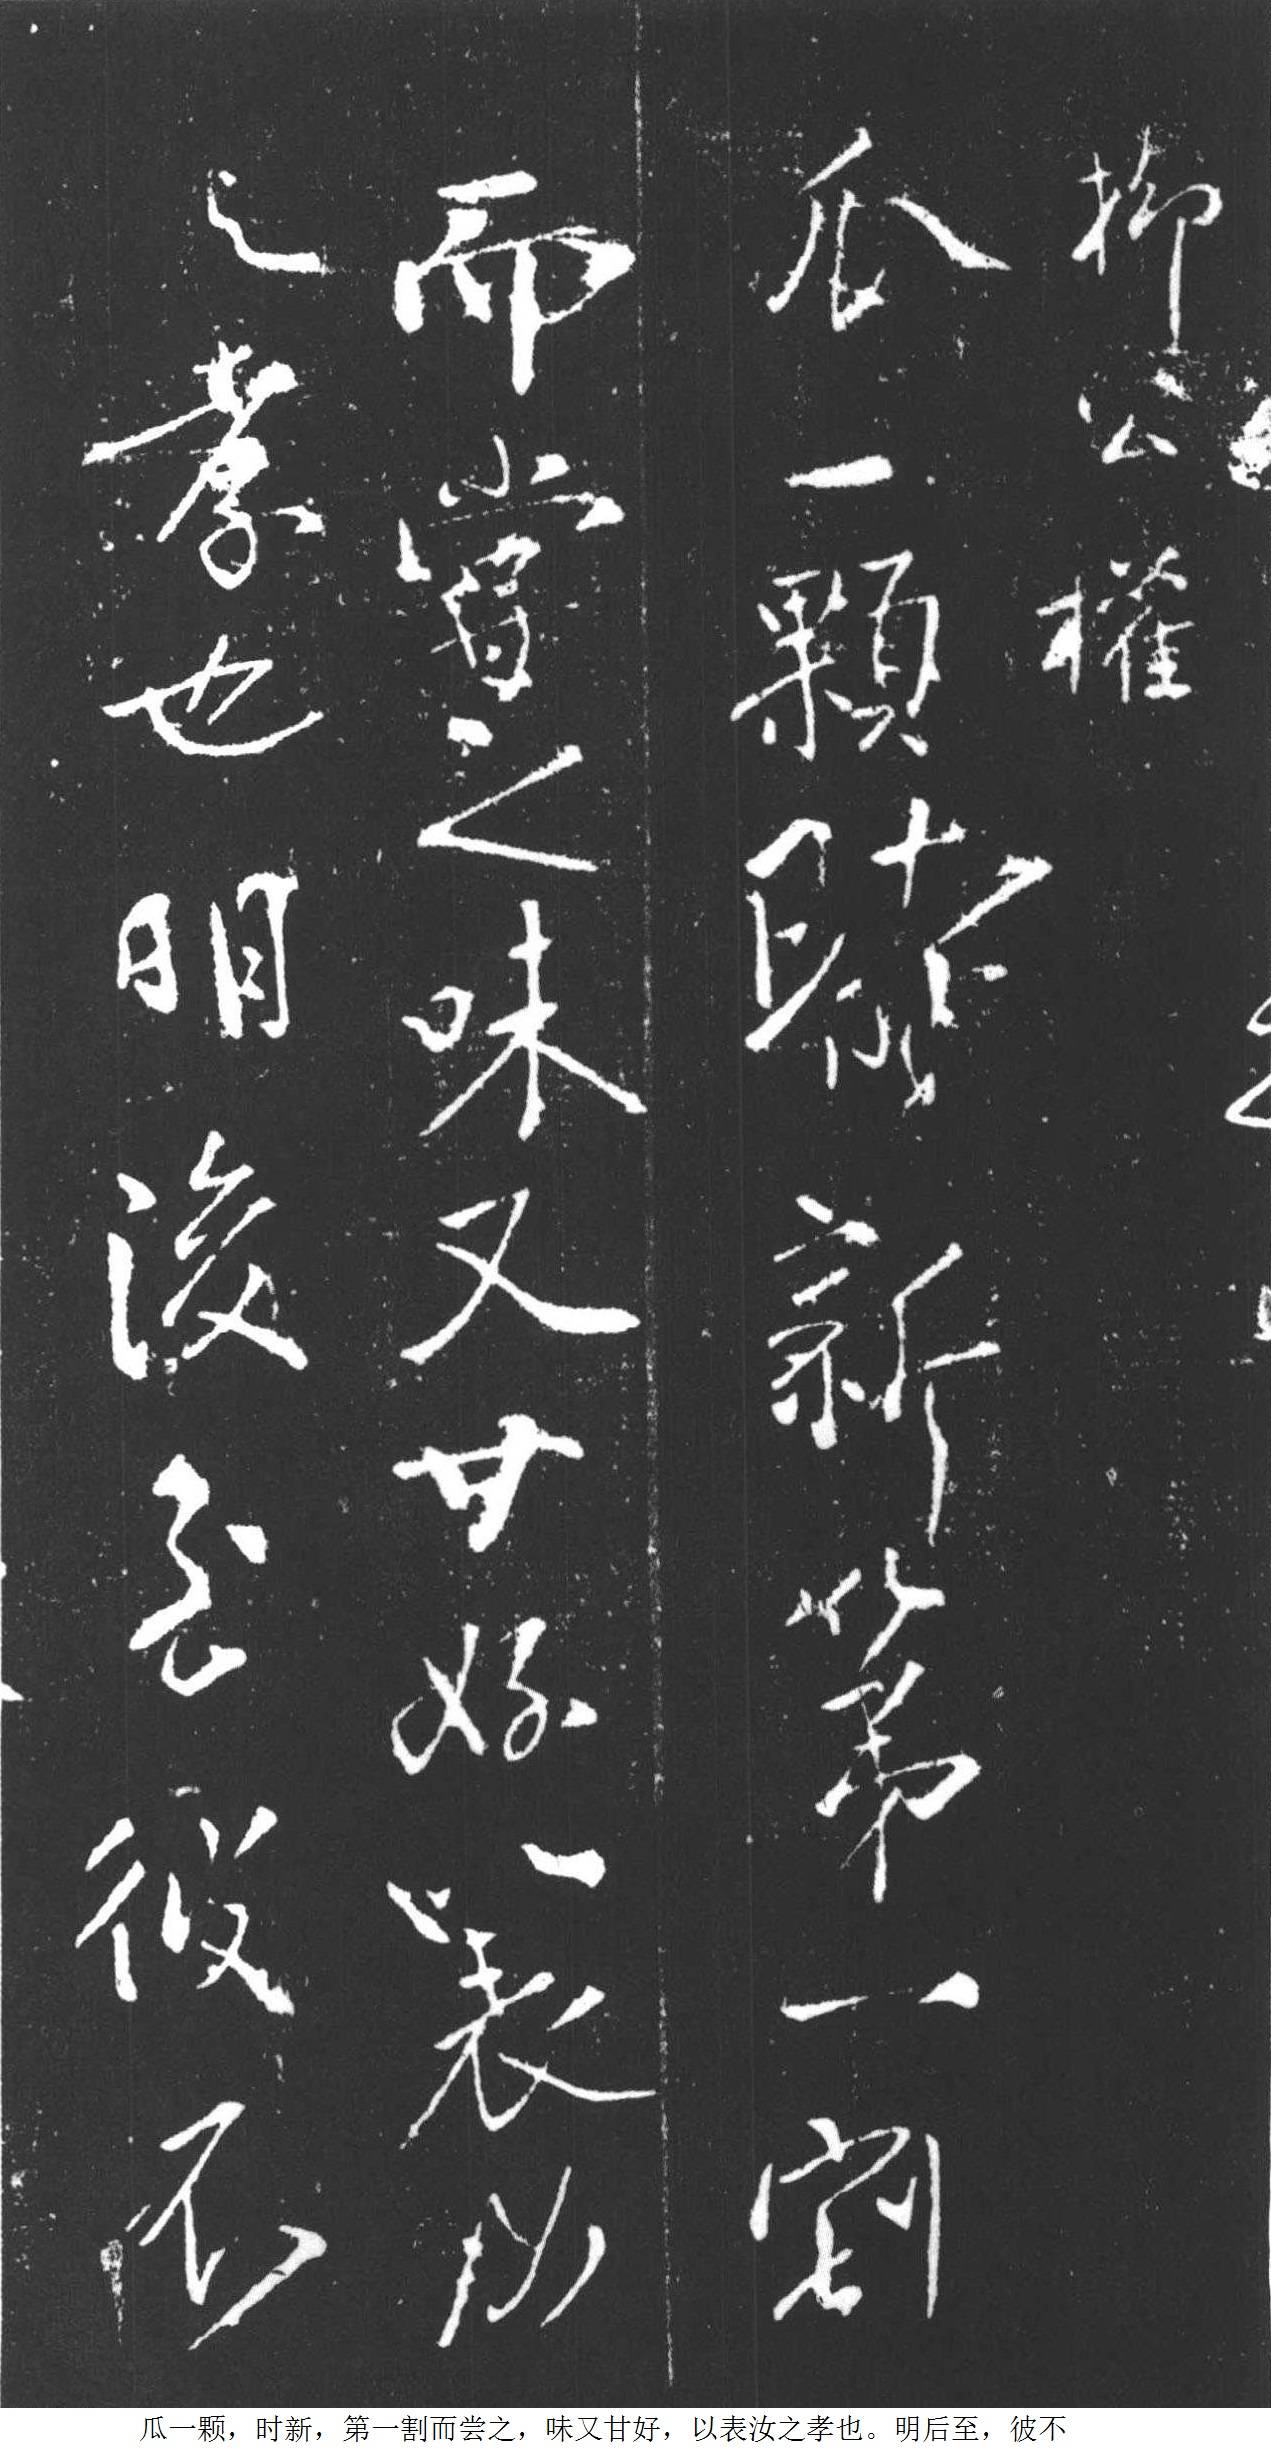 柳公權
瓜一顆時新第一割
而嘗之味又甘好以表汝
之孝也明後至彼不
瓜一颗，时新，第一割而尝之，味又甘好，以表汝之孝也。明后至，彼不